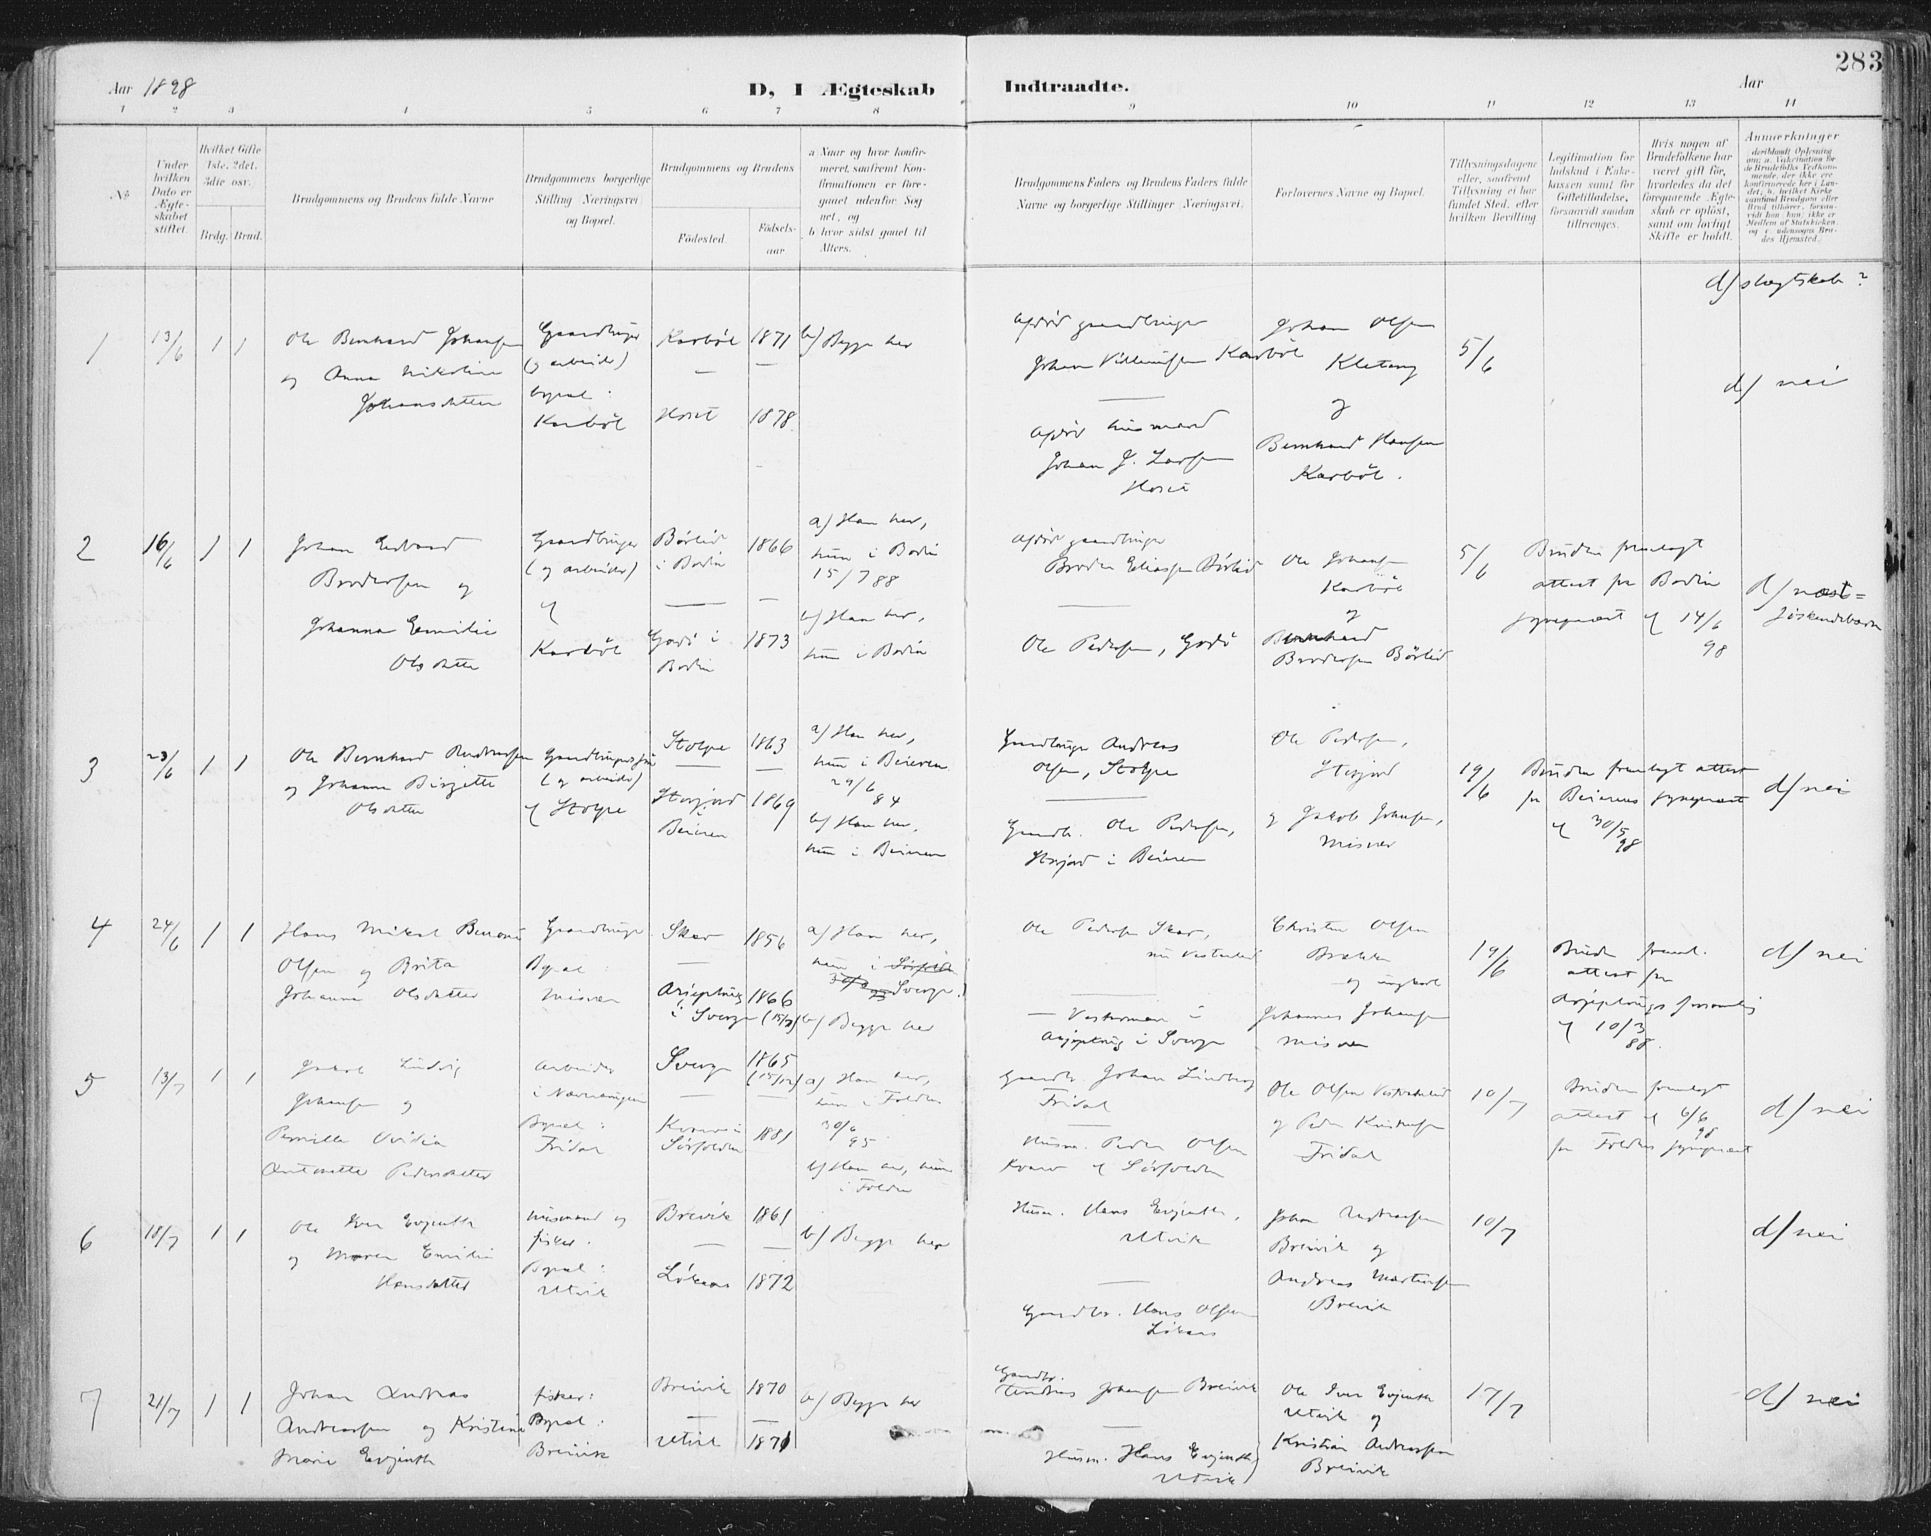 283
Aar 1898
D, I Ægteskab Indtraadte.
Aar
1 2 3 4 5 6 7 8 9 10 11 12 13 14
No
Under hvilken Dato er Ægteskabet stiftet.
Hvilket Gifte 1ste, 2det, 3die osv.
Brdg. Brud.
Brudgommens og Brudens fulde Navne
Brudgommens borgerlige Stilling (Næringsvei) og Bopæl.
Brudgommens og Brudens
Fødested.
Fødselsaar
a Naar og hvor konfirmeret, saafremt Konfirmationen er foregaaet udenfor Sognet, og
b hvor sidst gaaet til Alters.
Brudgommens Faders og Brudens Faders fulde Navne og borgerlige Stillinger (Næringsvei).
Forlovernes Navne og Bopæl.
Tillysningsdagene eller, saafremt Tillysning ei har fundet Sted, efter hvilken Bevilling.
Legitimation for Indskud i Enkekassen samt for Giftetilladelse, forsaavidt saadan tiltrænges.
Hvis nogen af Brudefolkene har været gift før, hvorledes da det foregaaende Ægteskab er opløst, samt om lovligt Skifte er holdt.
Anmærkninger
d/ slægtskab?
1 13/6 1 1
Ole Bernhard Johansen
og Anna Nikoline
Johansdatter
Gaardbruger
(og arbeider)
bopæl:
Karbøl
Karbøl 1871
Hoset 1878
b/ Begge her
Afdød gaardbruger
Johan Villumsen Karbøl
Afdød husmand
Johan J. Larsen
Hoset
Johan Olsen
Kletang
og
Bernhard Hansen
Karbøl.
5/6
d/ nei
2 16/6 1 1
Johan Edvard
Brodersen og
Johanna Emilie
Olsdatter
Gaardbruger
(og arbeider)
Karbøl
Børlid
i Bodin 1866
Godø i
Bodin 1873
a/ Han her,
hun i Bodin
15/7 88
b/ Han her,
hun i Bodin
Afdød gaardbruger
Broder Eliassen Børlid
Ole Pedersen, Godø
Ole Johansen
Karbøl
og
Bernhard
Brodersen Børlid
5/6
Bruden fremlagt
attest fra Bodin
14/6
98
d/ næst=
søskendebarn
3 23/6 1 1
Ole Bernhard Andreassen
og Johanna Birgitte
Olsdatter
Gaardbrugersøn
(og arbeider)
Stolpe
Stolpe 1863
Storjord
Beieren 1869
a/ Han her,
hun i Beieren
29/6
84
b/ Han her,
hun i Beieren
Gaardbruger Andreas
Olsen, Stolpe
Gaardb. Ole Pedersen,
Storjord i Beieren
Ole Pedersen,
Storjord
og Jakob Johansen,
Misvær
19/6
Bruden fremlagt attest
fra Beierens
30/5
98
d/ nei
4 24/6 1 1
Hans Mikal Benoni
Olsen og Brita
Johanna Olsdatter
Gaardbruger
Bopæl:
Misvær
Skar 1856
Arjeploug
i Sverge 1866
(15/7)
a/ Han her,
hun i Sørfolden
Sverge
b/ Begge her
Ole Pedersen Skar,
nu Vesterlid
— Vesterman i
Arjeploug i Sverge
Christen Olsen
Brække
og ungkarl
Johannes Johansen
Misvær
19/6
Bruden freml.
attest fra
Arjeplougs forsamling
10/3
88.
d/ nei
5 13/7 1 1
Jakob Ludvig
Johansen og
Pernille Ovidia
Antonette Pedersdatter
Arbeider
Bopæl:
Fridal
Sverge 1865
(15/12)
Kvarv i
Sørfolden 1881
a/ Han her,
hun i Folden
30/6
95
b/ Han her, hun
i Folden
Gaardb. Johan Lindberg
Fridal
Husm. Peder Olsen
Kvarv Sørfolden
Ole Olsen Vesterlid
og Peder Kristensen
Fridal
10/7
Bruden fremlagt
attest 6/6
98
fra Foldens
d/ nei
6 18/7 1 1
Ole Iver Evjenth
og Maren Emilie
Hansdatter
Husmand og
fisker.
Bopæl:
Utvik
Breivik 1861
Løkaas 1872
b/ Begge her
Husm. Hans Evjenth,
Utvik
Gaardbr. Hans Olsen
Løkaas
Johan Andreassen
Breivik og
Andreas Martinsen
Breivik
10/7
d/ nei
7 21/7 1 1
Johan Andreas
Andreassen og Kristine
Marie Evjenth
fisker:
Bopæl:
Breivik
Breivik 1870
Utvik 1871
b/ Begge her
Gaardbr.
Andreas Johansen Breivik
Husm. Hans Evjenth
Utvik
Ole Iver Evjenth
Utvik og
Kristian Andreassen
Breivik
17/7
d/ nei